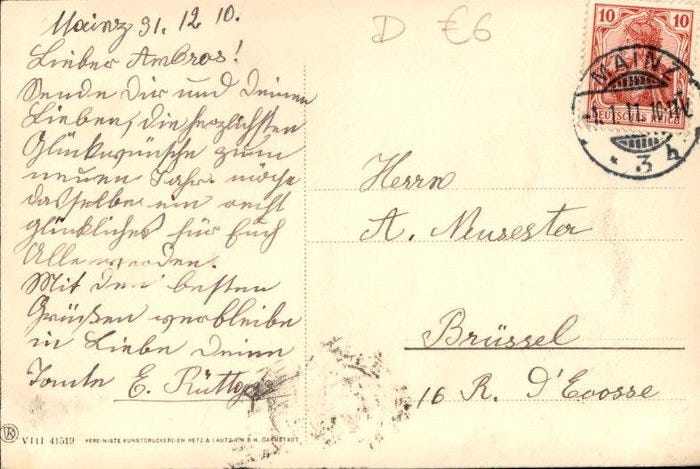 Mainz 31. 12 10.
Lieber Ambros!
Sende Dir und Deinen
Lieben, die herzlichsten
Glückwünsche zum
neuen Jahr. möge
dasselbe ein recht
glückliches für Euch
Alle werden.
Mit den besten
Grüßen verbleibe
in Liebe Deine
Tante E. Rüttger
D €6
10 10
DEUTSCHES REICH
MAINZ
1.1.11. 10-11V.
* 3 h
Herrn
A. Neusester
Brüssel
16 R. D'Ecosse
K VIII 41519 VEREINIGTE KUNSTDRUCKEREIEN METZ & LAUTZ G.M.B.H. DARMSTADT